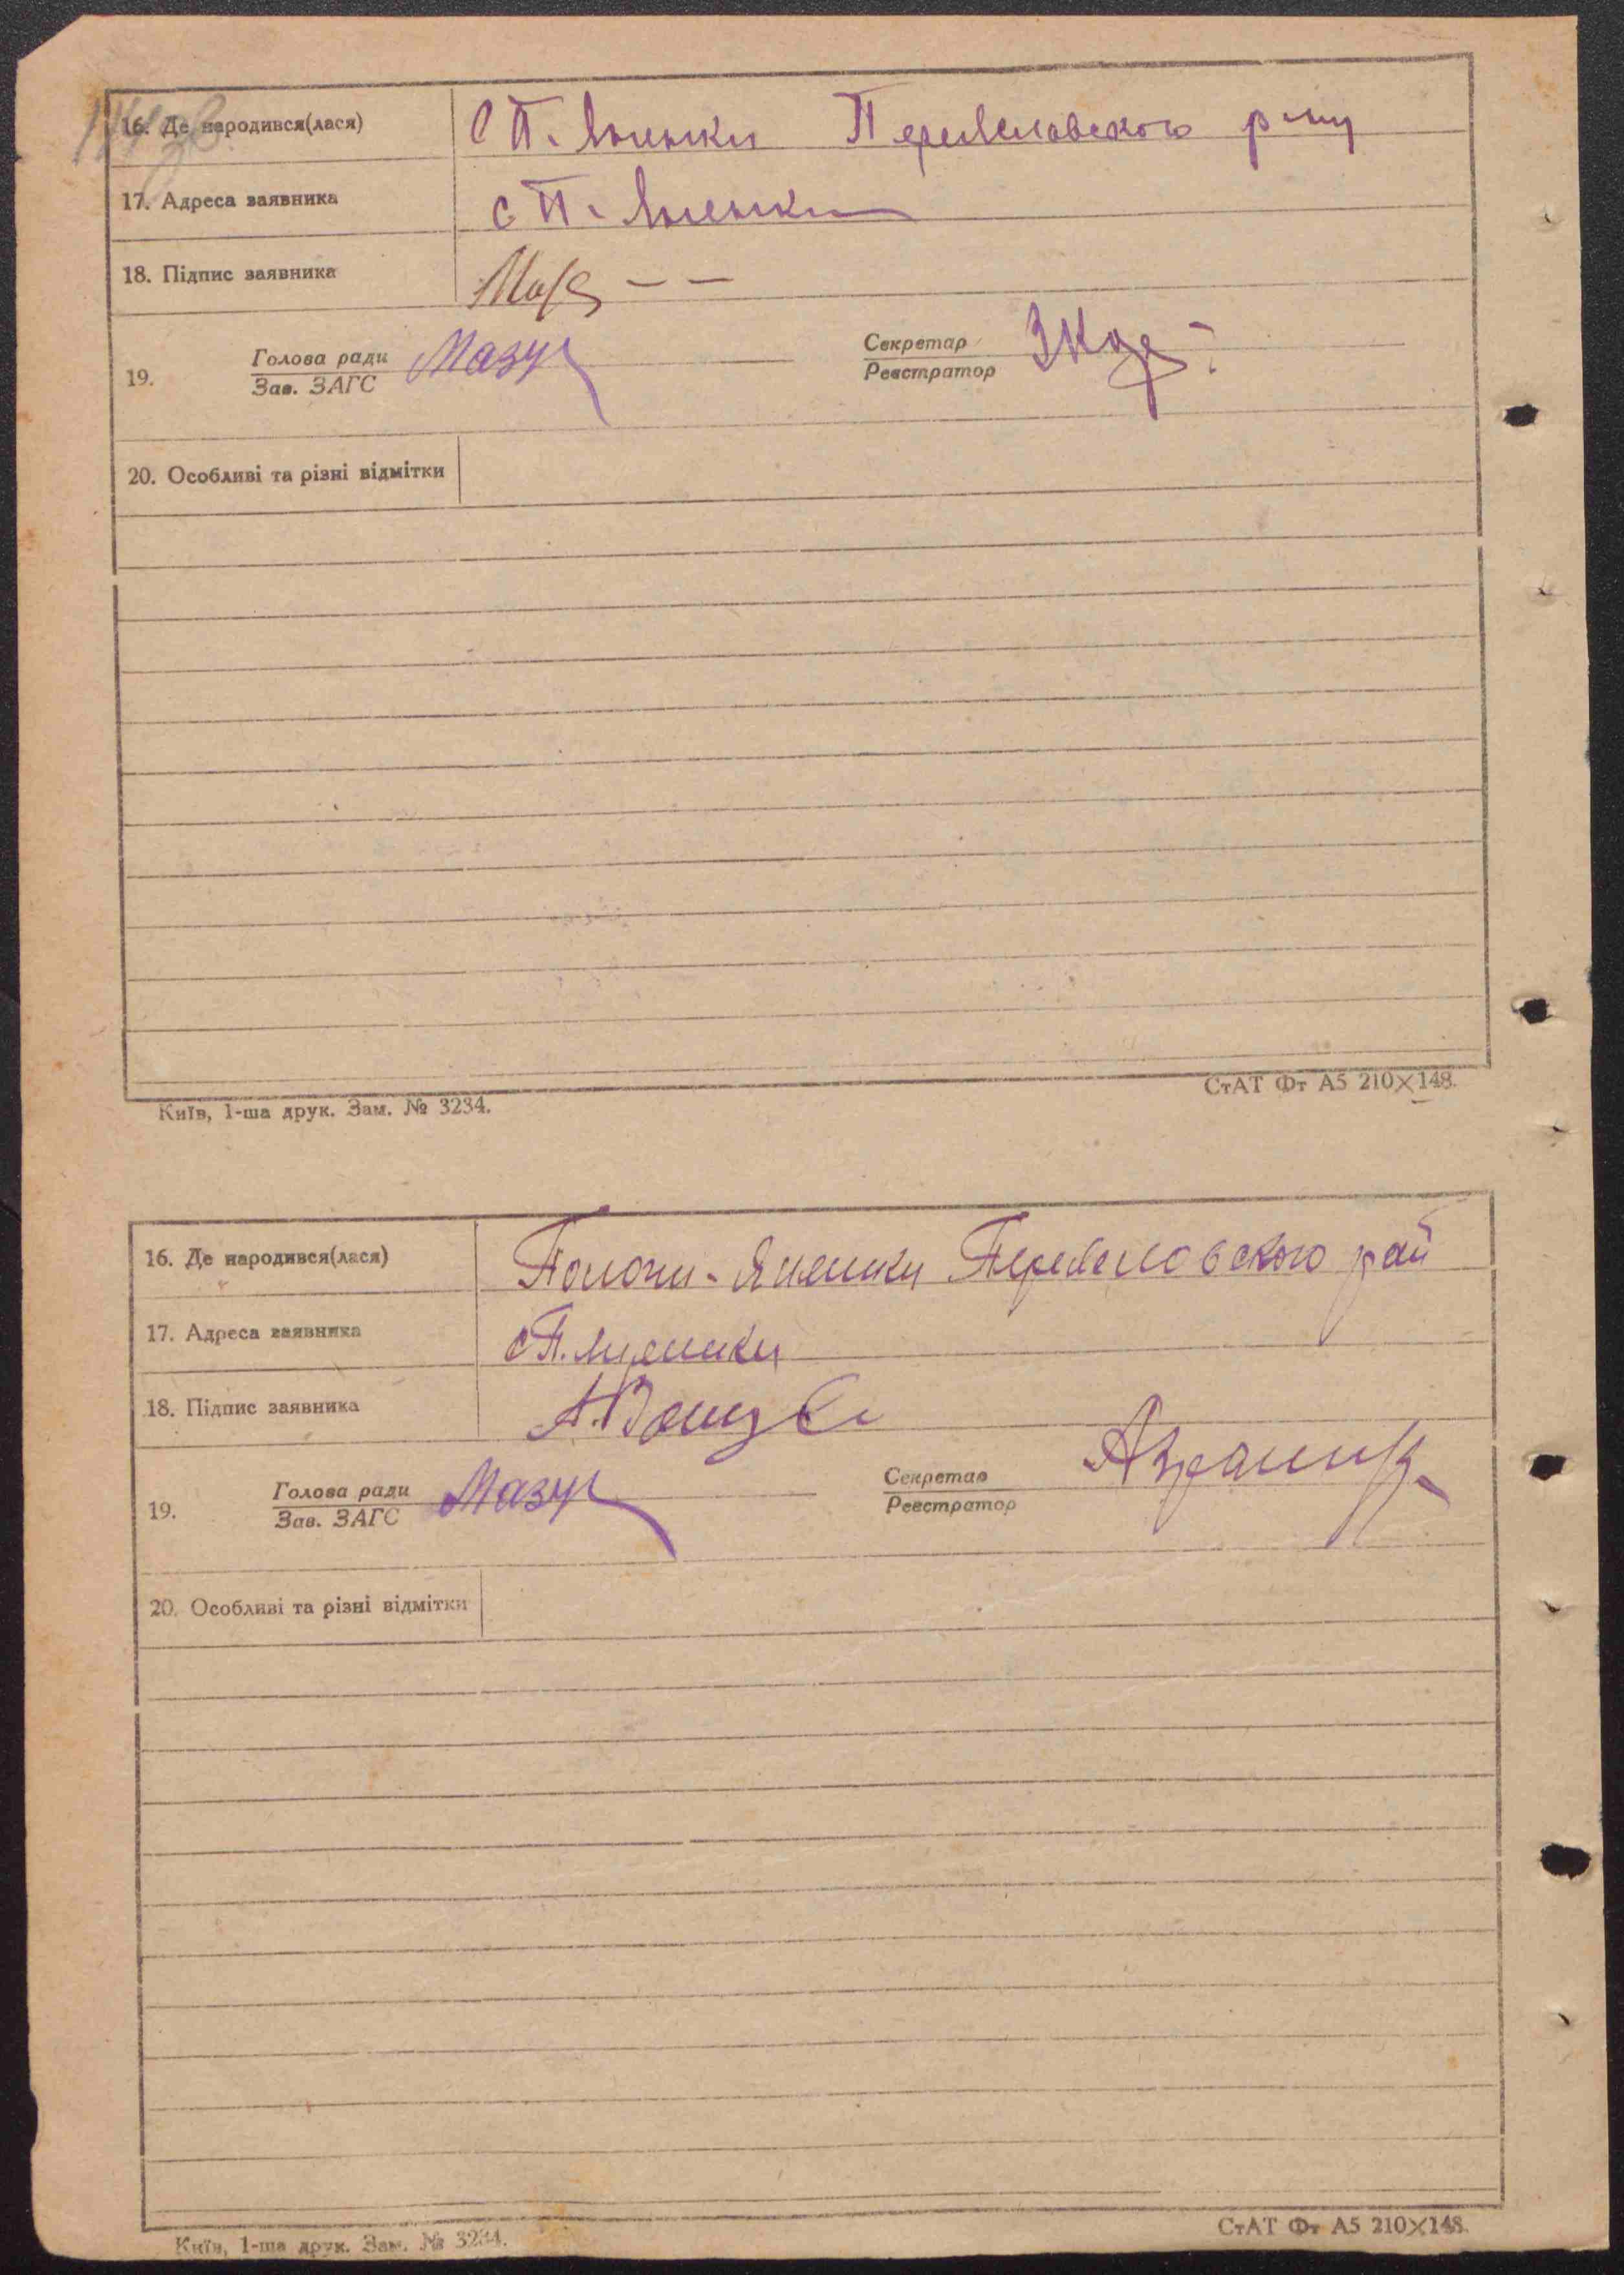 16. Де народився(лася) С П. Яненки Переяславского р-ну
17. Адреса заявника с П. Яненки
18. Підпис заявника
19. Голова ради Мазур Секретар
Зав. ЗАГС Реєстратор
20. Особливі та різні відмітки
Київ, 1-ша друк. Зам. № 3234. СтАТ Фт А5 210×148.
16. Де народився(лася) Яненки Переяславского рай
17. Адреса заявника с П. Яненки
18. Підпис заявника
19. Голова ради Мазур Секретар
Зав. ЗАГС Реєстратор
20. Особливі та різні відмітки
Київ, 1-ша друк. Зам. № 3234. СтАТ Фт А5 210×148.